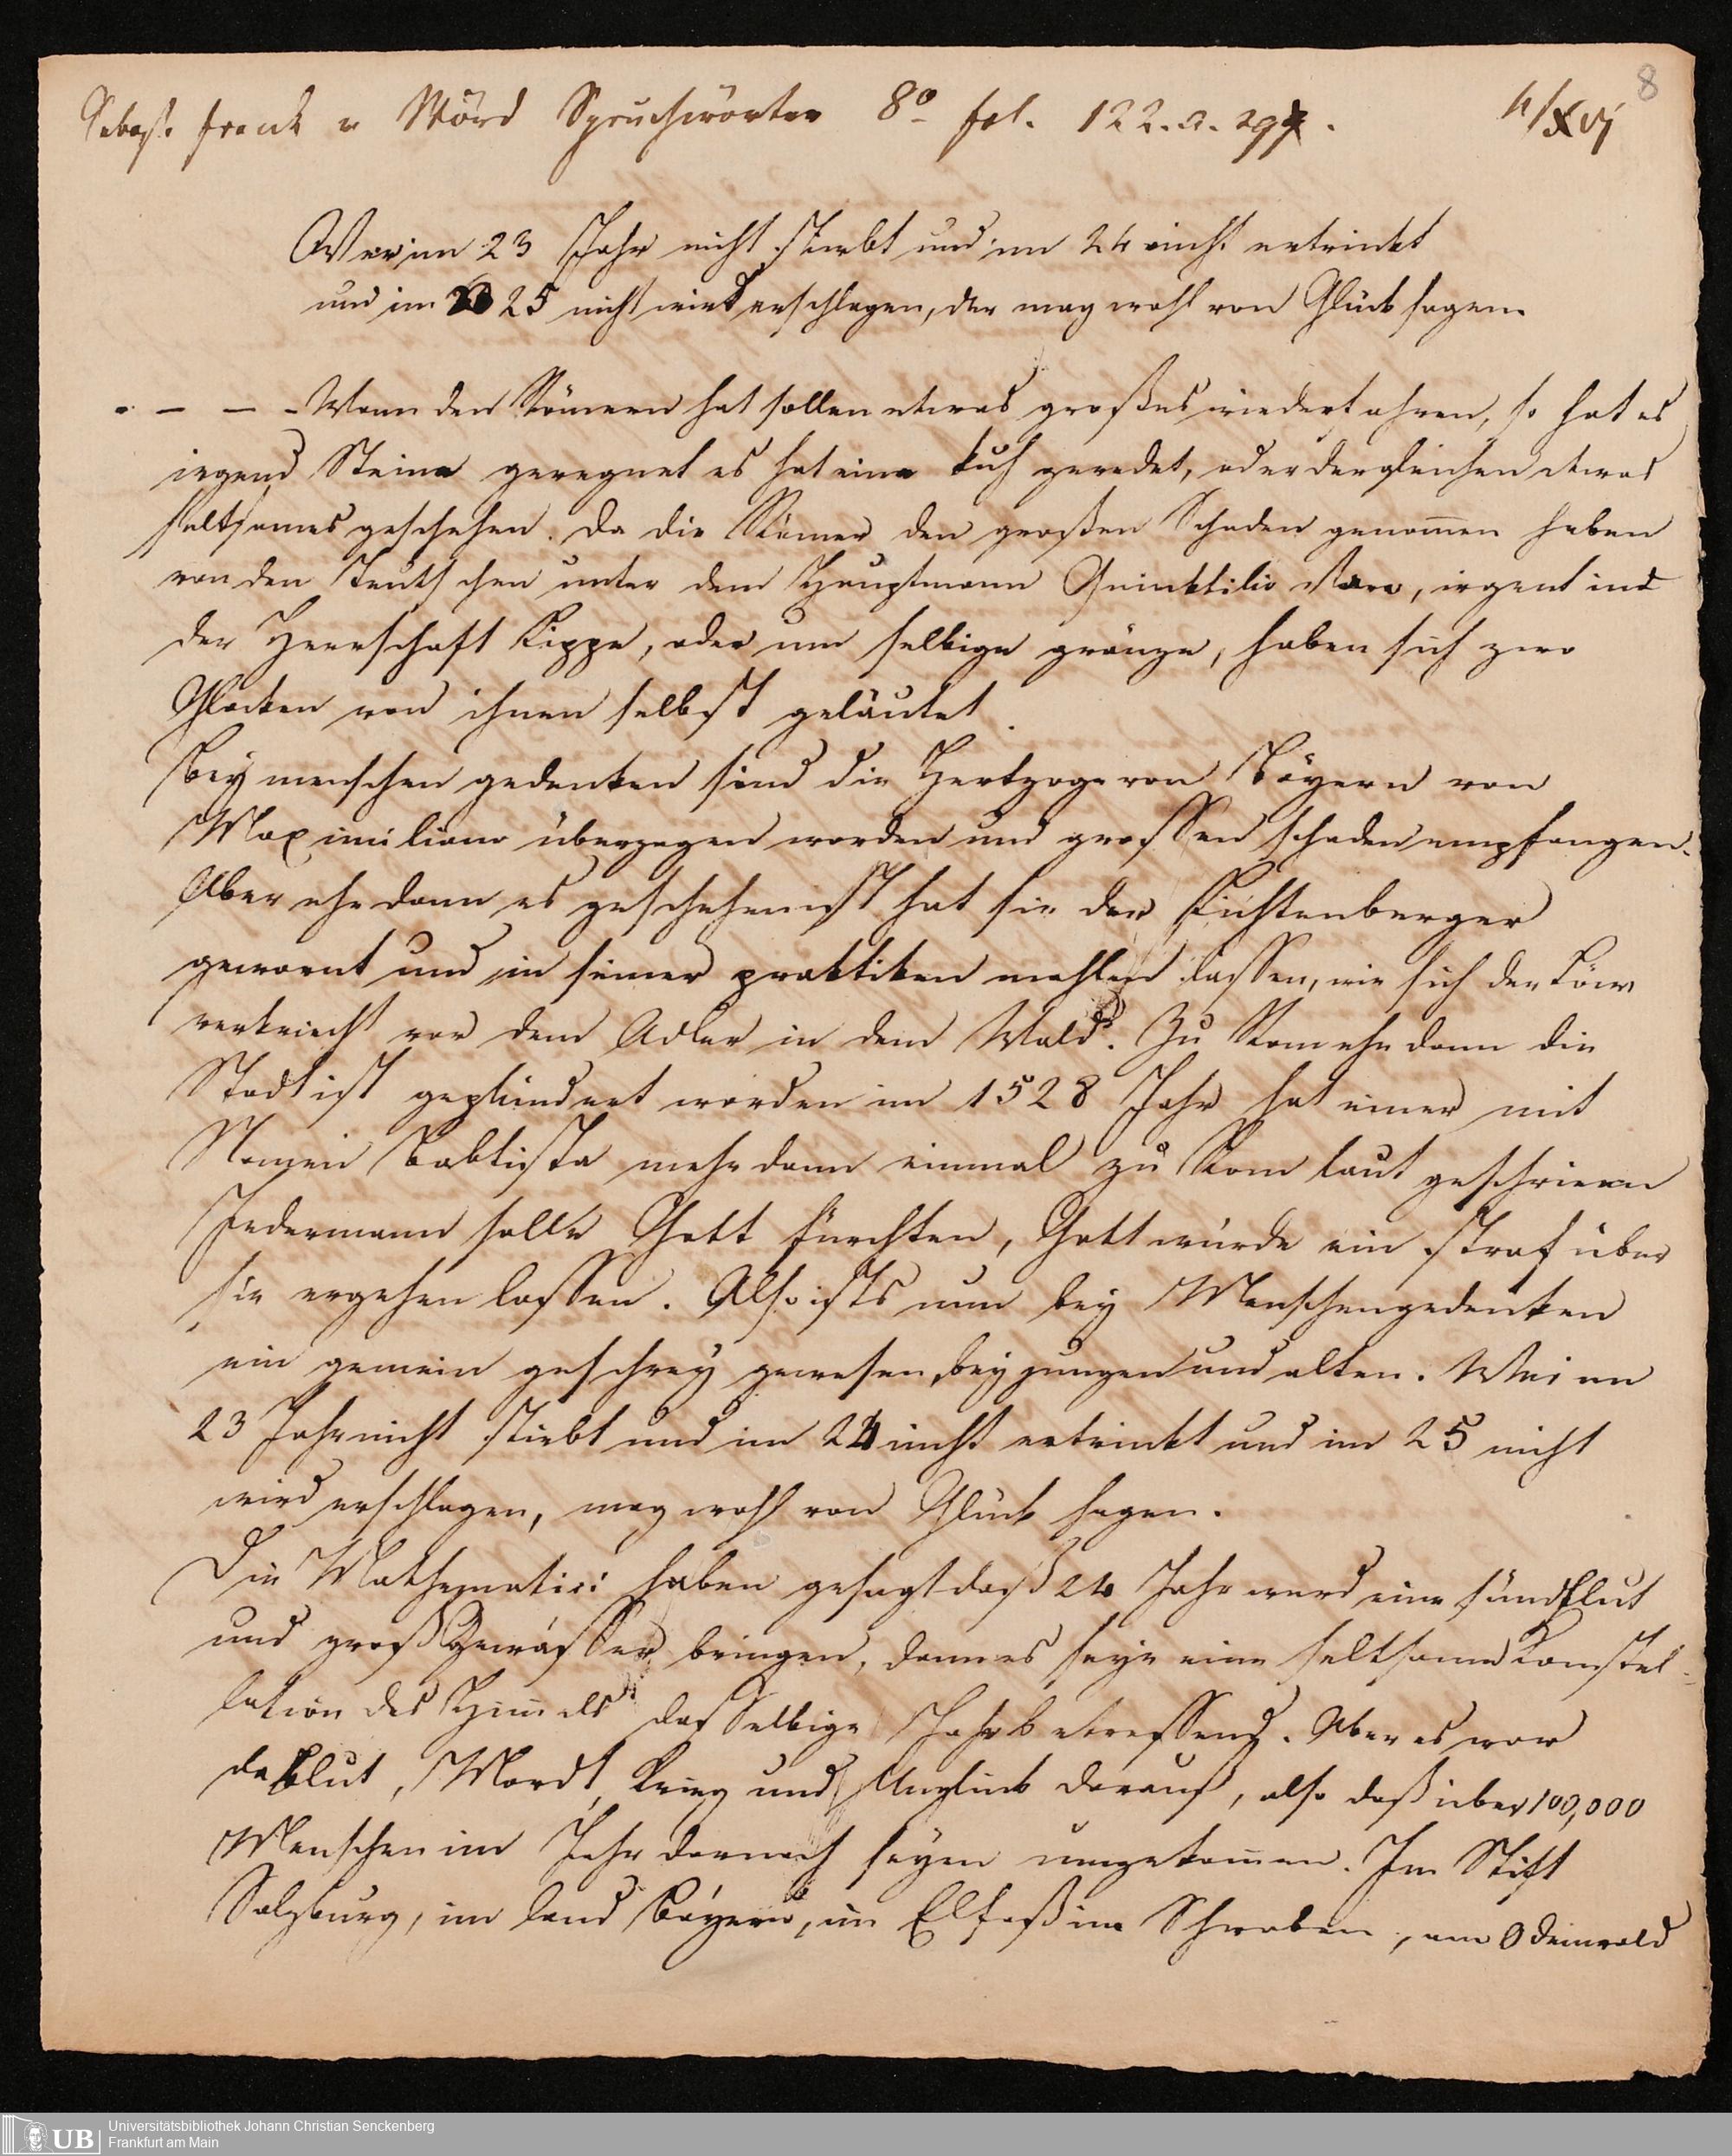 Sebast. Franck v Wörd Spruchwörter 8o fol. 122. a. 297.
4/XVI
8
Wer im 23 Jahr nicht stirbt und im 24 nicht ertrinkt
und im 25 nicht wird erschlagen, der mag wohl von Glück sagen.
. – – – Wann den Römern hat sollen etwas großes wiederfahren, so hat es
irgend Steine geregnet es hat eine kuh geredet, oder dergleichen etwas
seltsames geschehen. Da die Römer den großen Schaden genommen haben
von den Teutschen unter dem Hauptmann Quinktilio Varo, irgent in
der Herrschaft Lippe, oder um selbige gränze, haben sich zwo
Glocken von ihnen selbst geläutet.
Bey menschen gedenken sind die Hertzoge von Bäyern von
Maximiliano überzogen worden und grossen schaden empfangen.
Aber ehe dann es geschehen ist hat sie der Lichtenberger
gewarnt und in seiner praktiken mahlen lassen, wie sich der Löw
verkriecht vor dem Adler in dem Wald. Zu Rom ehe dann die
Stadt ist geplündert worden im 1528 Jahr hat einer mit
Namen Babtista mehr dann einmal zu Rom laut geschrieen
Jedermann solle Gott fürchten, Gott würde ein straf über
sie ergehen lassen. Also ists nun bey Menschengedenken
ein gemein geschrey gewesen, bey jungen und alten. Wer im
23 Jahr nicht stirbt und im 24 nicht ertrinkt und im 25 nicht
wird erschlagen, mag wohl von Glück sagen.
Die Mathematici haben gesagt daß 24 Jahr werd eine sündflut
und groß Gewässer bringen, dann es seye eine seltsame Constel-
lation des Himels dasselbige Jahr betreffend. Aber es war
da blut, Mordt, Krieg und Unglück darauf, also daß über 100,000
Menschen im Jahr darnach seyen umgekommen. Im Stift
Salzburg, im land Bäyern, im Elsaß im Schwaben, am Odenwald
Universitätsbibliothek Johann Christian Senckenberg
Frankfurt am Main
UB